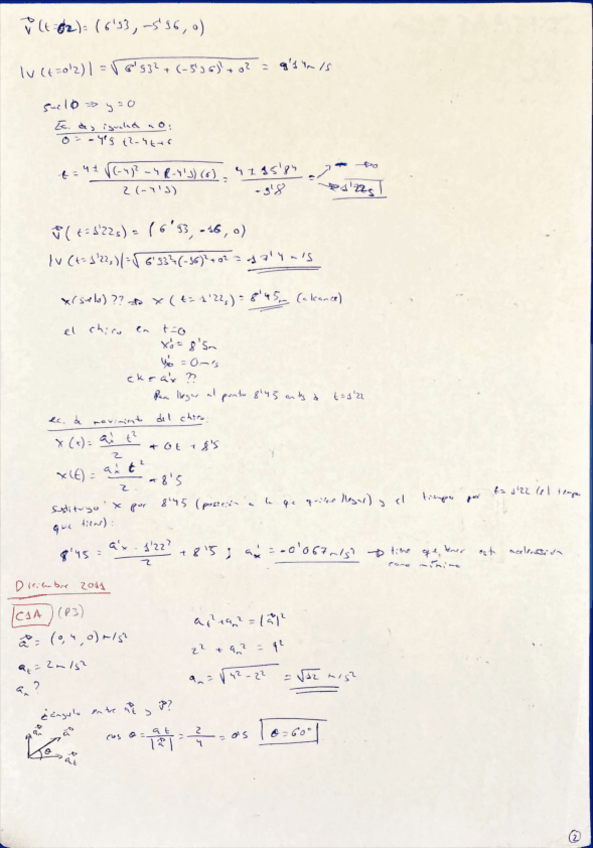 v⃗(t=0'2)=(6'93, -5'96, 0)
|v(t=0'2)| = √(6'93² + (-5'96)² + 0²) = 9'14 m/s
suelo ⇒ y=0
Ec. de y igualada a 0:
0 = -4'9 t² - 4t + 6
t = (4 ± √((-4)² - 4(-4'9)(6))) / (2(-4'9)) = (4 ± 15'84) / (-9'8) = 1'22s
v⃗(t=1'22s) = (6'93, -16, 0)
|v(t=1'22s)| = √(6'93²+(-16)²+0²) = 17'4 m/s
x(suelo)?? ⇒ x(t=1'22s) = 8'45m (alcance)
el chico en t=0
x'₀ = 8'5m
v'₀ = 0m/s
a'x ??
Para llegar al punto 8'45 t=1'22
ec. de movimiento del chico:
x(t) = a'x t²/2 + 0t + 8'5
x(t) = a'x t²/2 + 8'5
Sustituyo x por 8'45 (posición a la que quiere llegar) y el tiempo por t=1'22 (el tiempo
que tiene):
8'45 = a'x · 1'22²/2 + 8'5 ; a'x = -0'067 m/s² → tiene que tener esta aceleración
como mínimo
Diciembre 2011
C1A (P3)
a⃗ = (0,4,0) m/s²
aₜ = 2 m/s²
aₙ ?
aₜ² + aₙ² = |a⃗|²
2² + aₙ² = 4²
aₙ = √(4² - 2²) = √12 m/s²
¿ángulo entre a⃗ₜ y a⃗?
a⃗ₙ a⃗ θ a⃗ₜ
cos θ = aₜ/|a⃗| = 2/4 = 0'5 θ = 60°
2